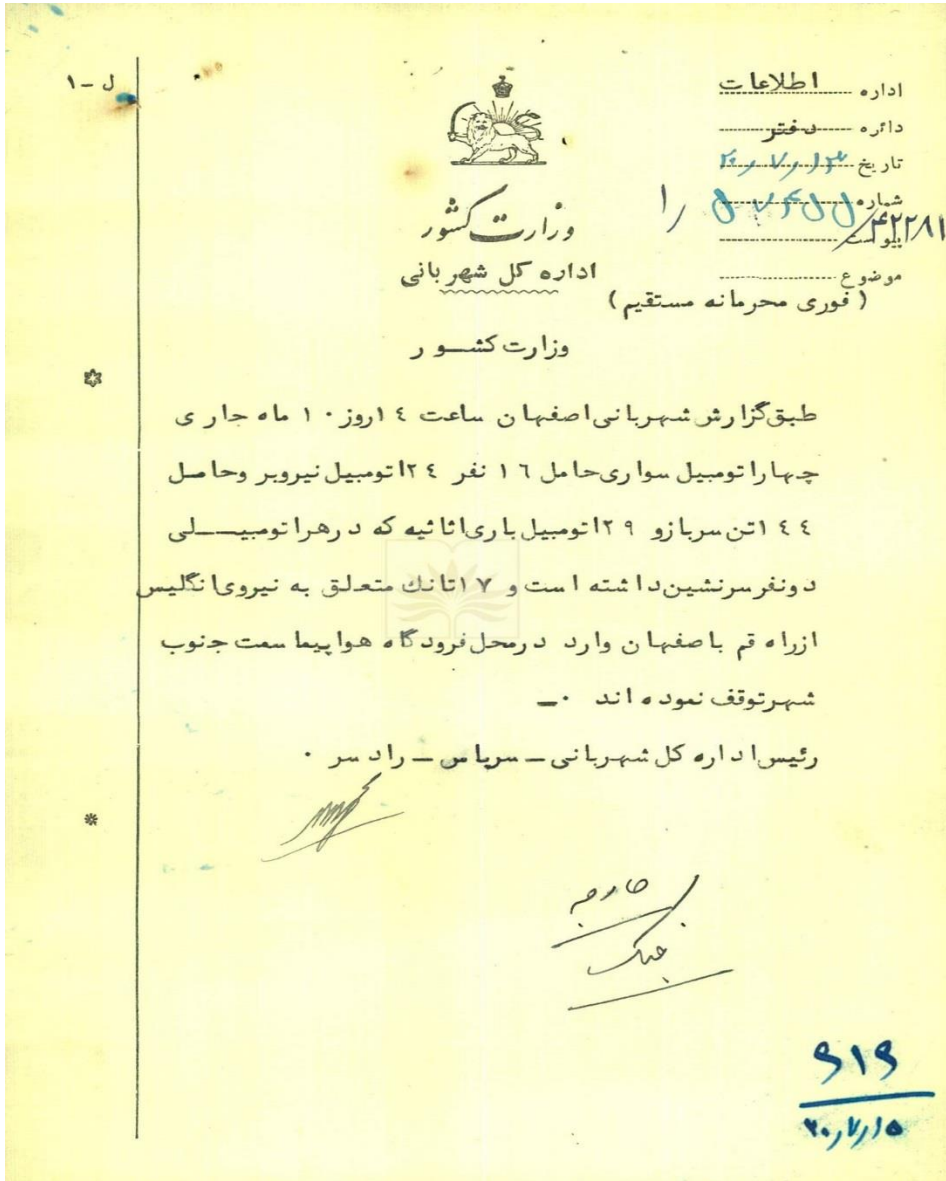 ل - ۱
اداره اطلاعات
دائره دفتر
تاریخ ۲۰٫۷٫۱۳
شماره
۴۲۲۸۱
پیوست
موضوع
وزارت کشور
اداره کل شهربانی
(فوری محرمانه مستقیم)
وزارت کشـــور
طبق گزارش شهربانی اصفهان ساعت ١٤ روز ١٠ ماه جاری
چهار اتومبیل سواری حامل ١٦ نفر ٢٤ اتومبیل نیروبر وحامـل
١٤٤ تن سرباز و ٢٩ اتومبیل باری اثاثیه که در هر اتومبیــــلی
دونفر سرنشین داشته است و ١٧ تانك متعلق به نیروی انگلیس
از راه قم باصفهان وارد درمحل فرودگاه هواپیما سمت جنوب
شهر توقف نموده اند ۰ــ
رئیس اداره کل شهربانی ــ سرپاس ــ رادسر ۰
خارجه
جنگ
۹۱۹
۲۰٫۷٫۱۵